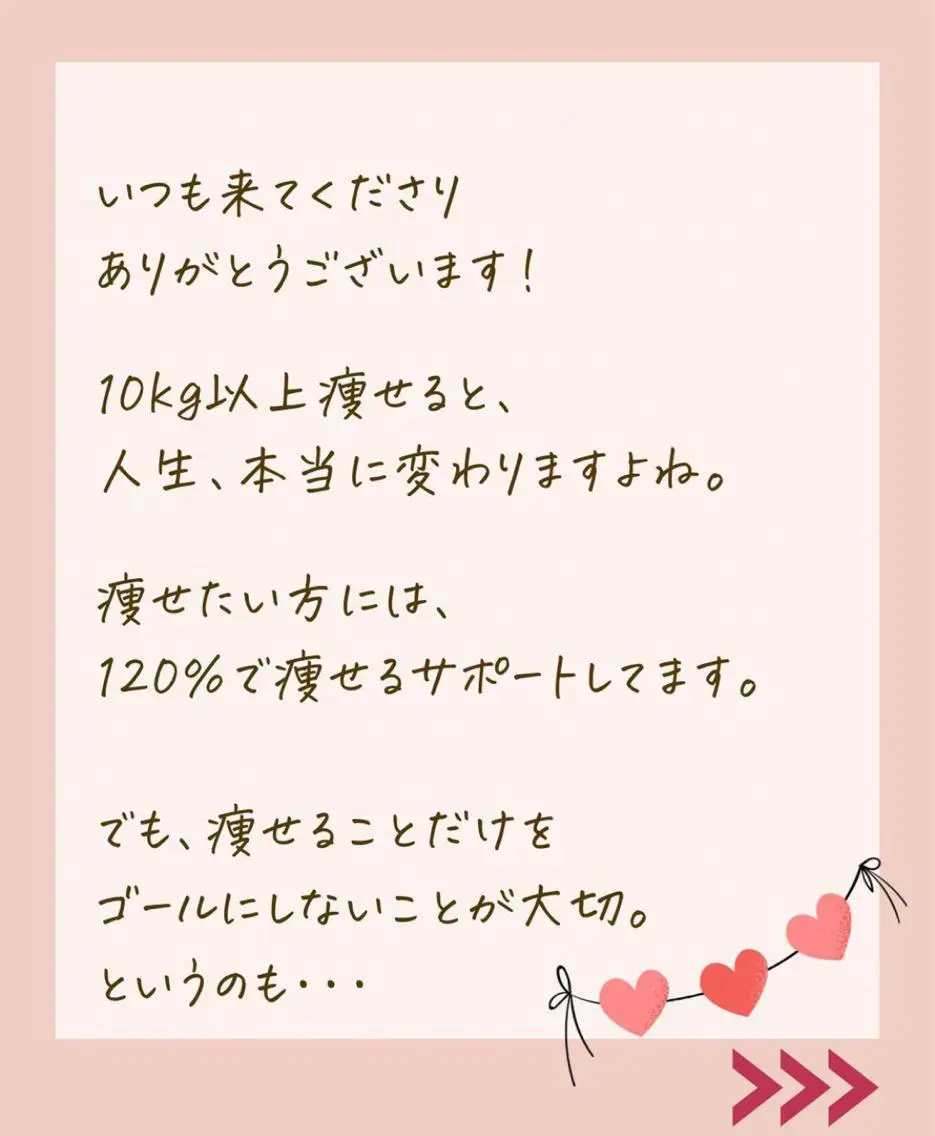 いつも来てくださり
ありがとうございます!
10kg以上痩せると、
人生、本当に変わりますよね。
痩せたい方には、
120%で痩せるサポートしてます。
でも、痩せることだけを
ゴールにしないことが大切。
というのも・・・